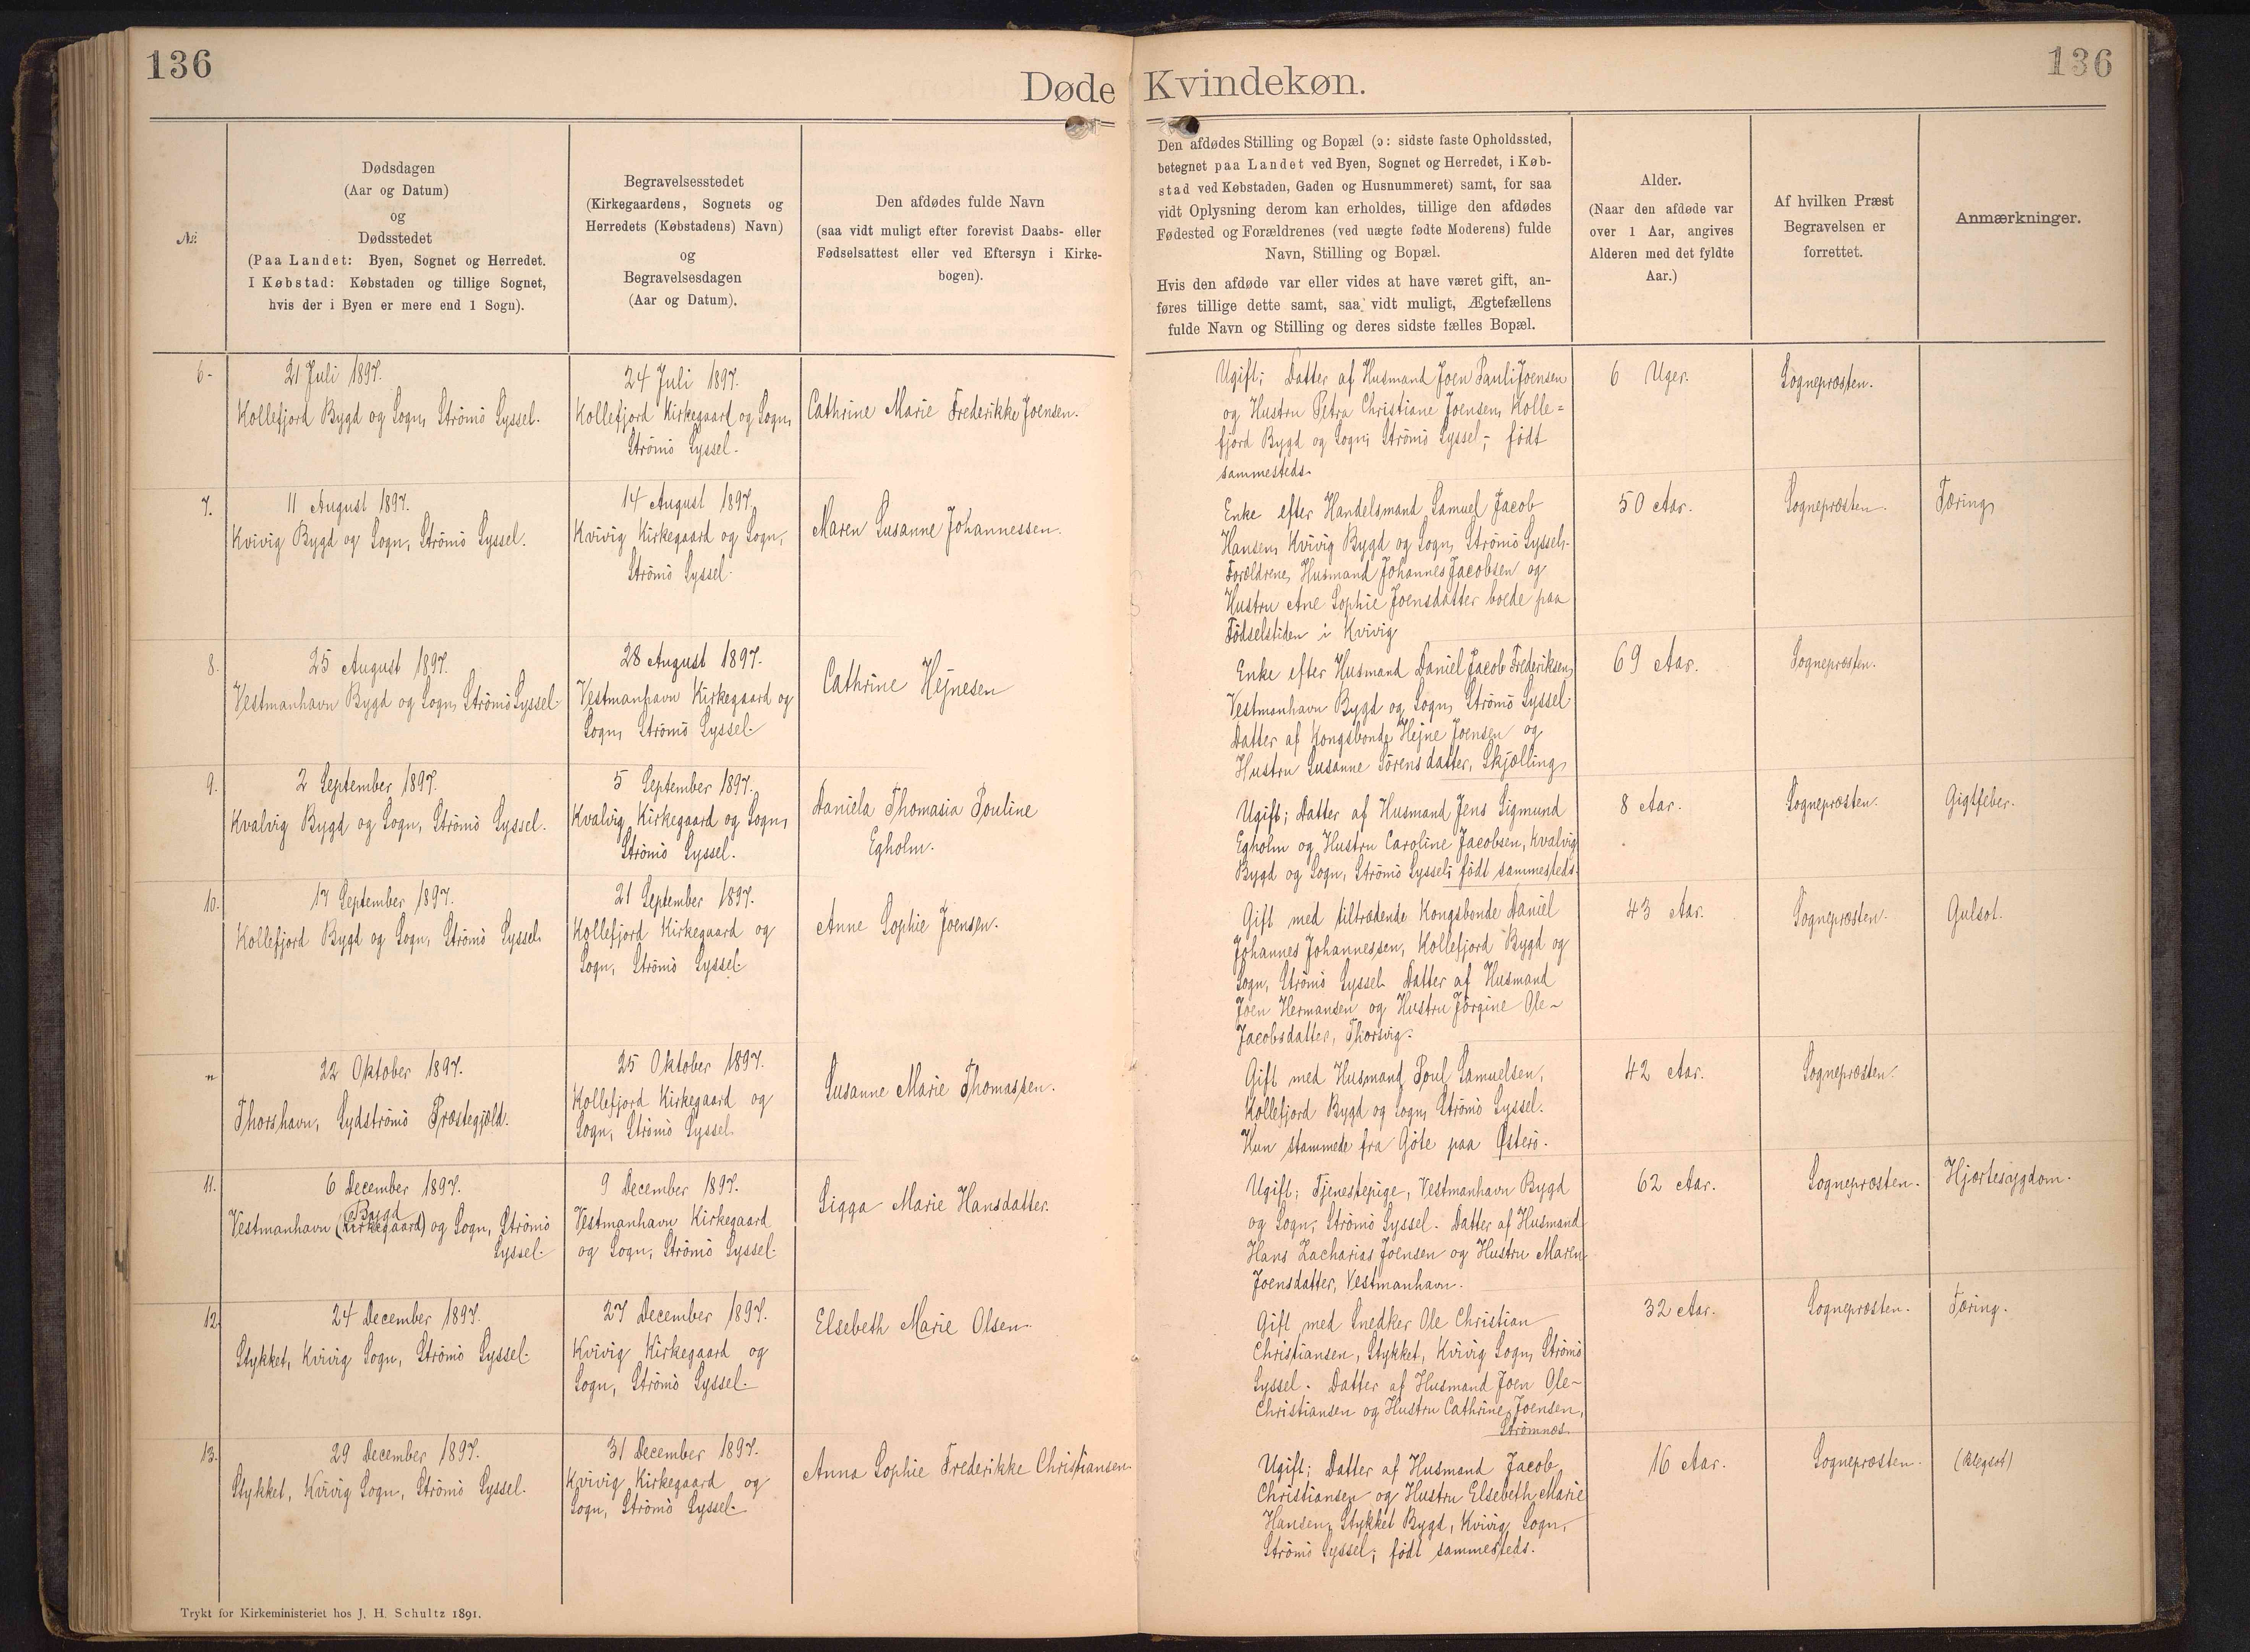 136
136
Døde Kvindekøn.
№
Dødsdagen
(Aar og Datum)
og
Dødsstedet
(Paa Landet: Byen, Sognet og Herredet.
I Købstad: Købstaden og tillige Sognet,
hvis der i Byen er mere end 1 Sogn).
Begravelsesstedet
(Kirkegaardens, Sognets og
Herredets (Købstadens) Navn)
og
Begravelsesdagen
(Aar og Datum).
Den afdødes fulde Navn
(saa vidt muligt efter forevist Daabs- eller
Fødselsattest eller ved Eftersyn i Kirke-
bogen).
Den afdødes Stilling og Bopæl (ɔ: sidste faste Opholdssted,
betegnet paa Landet ved Byen, Sognet og Herredet, i Køb-
stad ved Købstaden, Gaden og Husnummeret) samt, for saa
vidt Oplysning derom kan erholdes, tillige den afdødes
Fødested og Forældrenes (ved uægte fødte Moderens) fulde
Navn, Stilling og Bopæl.
Hvis den afdøde var eller vides at have været gift, an-
føres tillige dette samt, saa vidt muligt, Ægtefællens
fulde Navn og Stilling og deres sidste fælles Bopæl.
Alder.
(Naar den afdøde var
over 1 Aar, angives
Alderen med det fyldte
Aar.)
Af hvilken Præst
Begravelsen er
forrettet.
Anmærkninger.
6-
21 Juli 1897.
Kollefjord Bygd og Sogn, Strömö Syssel.
24 Juli 1897.
Kollefjord Kirkegaard og Sogn,
Strömö Syssel.
Cathrine Marie Frederikke Joensen.
Ugift; Datter af Husmand Joen Pauli Joensen
og Hustru Petra Christiane Joensen, Kolle=
fjord Bygd og Sogn, Strömö Syssel; födt
sammesteds.
6 Uger.
Sognepræsten.
7.
11 August 1897.
Kvivig Bygd og Sogn, Strömö Syssel.
14 August 1897.
Kvivig Kirkegaard og Sogn,
Strömö Syssel.
Maren Susanne Johannessen.
Enke efter Handelsmand Samuel Jacob
Hansen, Kvivig Bygd og Sogn, Strömö Syssel.
Forældrene, Husmand Johannes Jacobsen og
Hustru Ane Sophie Joensdatter boede paa
Födselstiden i Kvivig
50 Aar.
Sognepræsten.
Tæring
8.
25 August 1897.
Vestmanhavn Bygd og Sogn, Strömö Syssel.
28 August 1897.
Vestmanhavn Kirkegaard og
Sogn, Strömö Syssel.
Cathrine Hejnesen
Enke efter Husmand Daniel Jacob Frederiksen,
Vestmanhavn Bygd og Sogn, Strömö Syssel.
Datter af Kongsbonde Hejne Joensen og
Hustru Susanne Sörensdatter, Skjælling,
69 Aar.
Sognepræsten.
9.
2 September 1897.
Kvalvig Bygd og Sogn, Strömö Syssel.
5 September 1897.
Kvalvig Kirkegaard og Sogn,
Strömö Syssel.
Daniela Thomasia Pouline
Egholm.
Ugift; Datter af Husmand Jens Sigmund
Egholm og Hustru Caroline Jacobsen, Kvalvig
Bygd og Sogn, Strömö Syssel; födt sammesteds.
8 Aar.
Sognepræsten.
Gigtfeber.
10.
17 September 1897.
Kollefjord Bygd og Sogn, Strömö Syssel.
21 September 1897.
Kollefjord Kirkegaard og
Sogn, Strömö Syssel.
Anne Sophie Joensen.
Gift med tiltrædende Kongsbonde Daniel
Johannes Johannessen, Kollefjord Bygd og
Sogn, Strömö Syssel. Datter af Husmand
Joen Hermansen og Hustru Jörgine Ole-
Jacobsdatter, Thorsvig.
43 Aar.
Sognepræsten.
Gulsot.
"
22 Oktober 1897.
Thorshavn, Sydströmö Præstegjæld.
25 Oktober 1897.
Kollefjord Kirkegaard og
Sogn, Strömö Syssel
Susanne Marie Thomassen.
Gift med Husmand Poul Samuelsen,
Kollefjord Bygd og Sogn, Strömö Syssel.
Hun stammede fra Göte paa Østerö.
42 Aar.
Sognepræsten.
11.
6 December 1897.
Bygd
Vestmanhavn (Kirkegaard) og Sogn, Strömö
Syssel.
9 December 1897.
Vestmanhavn Kirkegaard
og Sogn, Strömö Syssel.
Sigga Marie Hansdatter.
Ugift; Tjenestepige, Vestmanhavn Bygd
og Sogn, Strömö Syssel. Datter af Husmand
Hans Zacharias Joensen og Hustru Maren
Joensdatter, Vestmanhavn.
62 Aar.
Sognepræsten.
Hjærtesygdom.
12.
24 December 1897.
Stykket, Kvivig Sogn, Strömö Syssel.
27 December 1897.
Kvivig Kirkegaard og
Sogn, Strömö Syssel.
Elsebeth Marie Olsen.
Gift med Snedker Ole Christian
Christiansen, Stykket, Kvivig Sogn, Strömö
Syssel. Datter af Husmand Joen Ole-
Christiansen og Hustru Cathrine Joensen,
Strömnæs.
32 Aar.
Sognepræsten.
Tæring.
13.
29 December 1897.
Stykket, Kvivig Sogn, Strömö Syssel.
31 December 1897.
Kvivig Kirkegaard og
Sogn, Strömö Syssel.
Anna Sophie Frederikke Christiansen
Ugift; Datter af Husmand Jacob
Christiansen og Hustru Elsebeth Marie
Hansen, Stykket Bygd, Kvivig Sogn,
Strömö Syssel; födt sammesteds.
16 Aar.
Sognepræsten.
(Blegsot)
Trykt for Kirkeministeriet hos J. H. Schultz 1891.